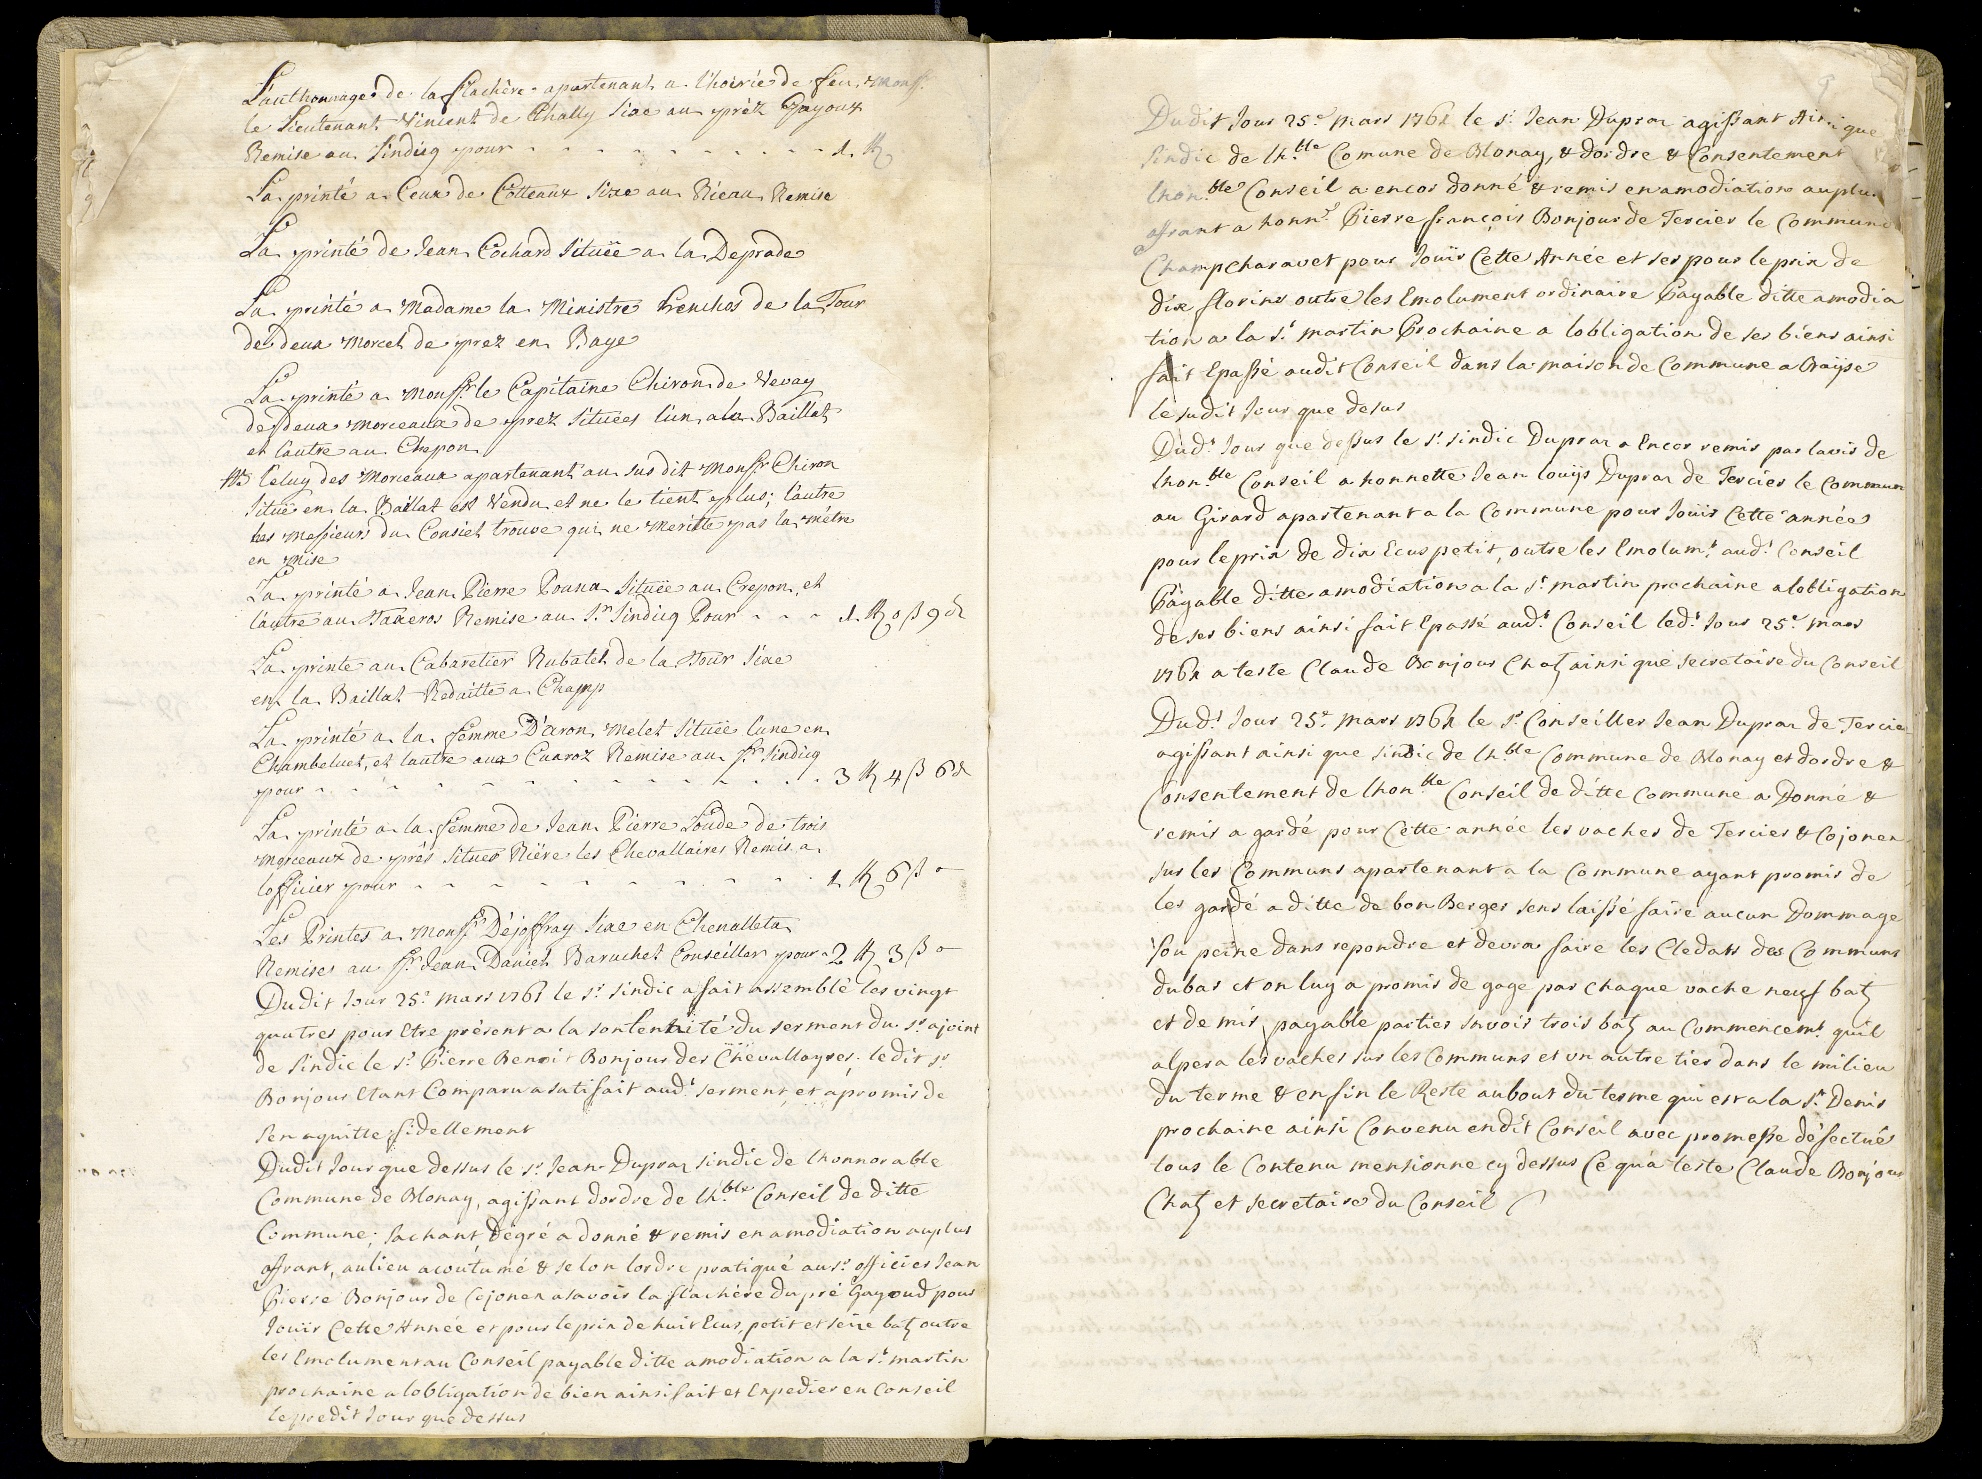 L'authonnage de la flachère apartenant a l'hoirie de feu Monsr.
le Lieutenant Vincent de Chally sise au prêz Gayoux
Remise au sindicq pour - - - - - - - - - - - 1.
La printé a Ceux de Cotteaux Size au Rieau Remise
La printé de Jean Cochard Situëe a la Deprade
La printé a Madame la Ministre Grenchos de la Tour
de deux Morcel de prez en Baye
La printé a Monsr. le Capitaine Chiron de Vevay
de deux Morceaux de prez Situëes l'un a la Baillat
et l'autre au Crepon
NB Celuy des Morceaux apartenant au sus dit Monsr Chiron
Situé en la Baillat est Vendu et ne le tient plus; l'autre
les Messieurs du Consiel trouve qui ne Meritte pas la mêtre
en Mise
La printé a Jean Pierre Pouna Situëe au Crepon, et
l'autre au Taxeros Remise au Sr. Sindicq Pour - - - 1. 0 ß 9 d
La printe au Cabaretier Rubatel de la Tour Size
en la Baillat Redaitte a Champ
La printé a la femme D'aron Melet Situëe l'une en
Chambeluet, et l'autre aux Cuaroz Remise au Sr. Sindicq
pour - - - - - - - - - - - - - 3 4 ß 6 d
La printé a la femme de Jean Pierre Loude de trois
Morceaux de prés Situes Riére les Chevallaires Remis a
l'officier pour - - - - - - - - - - 1 6 ß o
Les Printes a Monsr. Déjoffray Size en Chenalleta
Remises au Sr. Jean Daniel Baruchet Conseiller pour - 2 3 ß o
Dudit Jour 25e. mars 1761 le Sr. sindic a fait assemblé les vingt
quatres pour Etre présent a la sontennité du serment du Sr. ajoint
de sindic le Sr. Pierre Benoit Bonjour des Chevallayres; ledit Sr.
Bonjour Etant Comparu a satisfait aud.t serment, et a promis de
s'en aquitte fidellement
Dudit Jour que dessus le Sr. Jean Dupraz sindic de l'honnorable
Commune de Blonay, agissant dordre de lh.ble Conseil de ditte
Commune; sachant Dégré a donné & remis en amodiation au plus
ofrant, au lieu acoutumé & selon lordre pratiqué au Sr. officier Jean
Pierre Bonjour de Cojonex a savoir la flachère du pré Gayoud pour
Jouir Cette Année et pour le prix de huit Ecus, petit et seize batz outre
les Emolument au Conseil payable ditte amodiation a la St. martin
prochaine a lobligation de bien ainsi fait et Expedier en Conseil
le predit Jour que dessus
Dudit Jour 25e. mars 1761 le Sr. Jean Dupraz agissant Ainsi que
sindic de lh.ble Comune de Blonay, & dordre & Consentement
lhon.ble Conseil a encor donné & remis en amodiation au plus
ofrant a honn.e Pierre françois Bonjour de Tercier le Commun
Champcharavet pour Jouir Cette Année et ses pour le prix de
dix florins outre les Emolument ordinaire Payable ditte amodia
tion a la St. martin Prochaine a lobligation de ses biens ainsi
fait Epassé audit Conseil dans la maison de Commune a Brayse
le sudit Jour que desus
Dud.t Jour que dessus le Sr. sindic Dupraz a Encor remis par lavis de
lhon.ble Conseil a honnette Jean louijs Dupraz de Tercier le Commun
au Girard apartenant a la Commune pour Jouir Cette année
pour le prix de dix Ecus petit, outre les Emolum.t aud.t Conseil
Payable ditte amodiation a la St. martin prochaine a lobligation
de ses biens ainsi fait Epassé aud.t Conseil led.t Jour 25e. mars
1761 a teste Claude Bonjour Chatz ainsi que secretaire du Conseil
Dud.t Jour 25e. mars 1761 le Sr. Conseiller Jean Dupraz de Tercier
agissant ainsi que sindic de lh.ble Commune de Blonay et dordre &
Consentement de lhon.ble Conseil de ditte Commune a Donné &
remis a gardé pour Cette année les vaches de Tercier & Cojonex
sur les Communs apartenant a la Commune ayant promis de
les gardé a ditte de bon Berger sens laissé faire aucun Dommage
sou peine dans repondre et devra faire les Cledats des Communs
du bas et on luy a promis de gage par chaque vache neuf batz
et demis payable parties savoir trois batz au Commencemt. quil
alpera les vaches sur les Communs et un autre tier dans le milieu
du terme & enfin le Reste au bout du terme qui est a la St. Denis
prochaine ainsi Convenu endit Conseil avec promesse défectués
tous le Contenu mensionne cy dessus Ce qu'a teste Claude Bonjour
Chatz et secretaire du Conseil